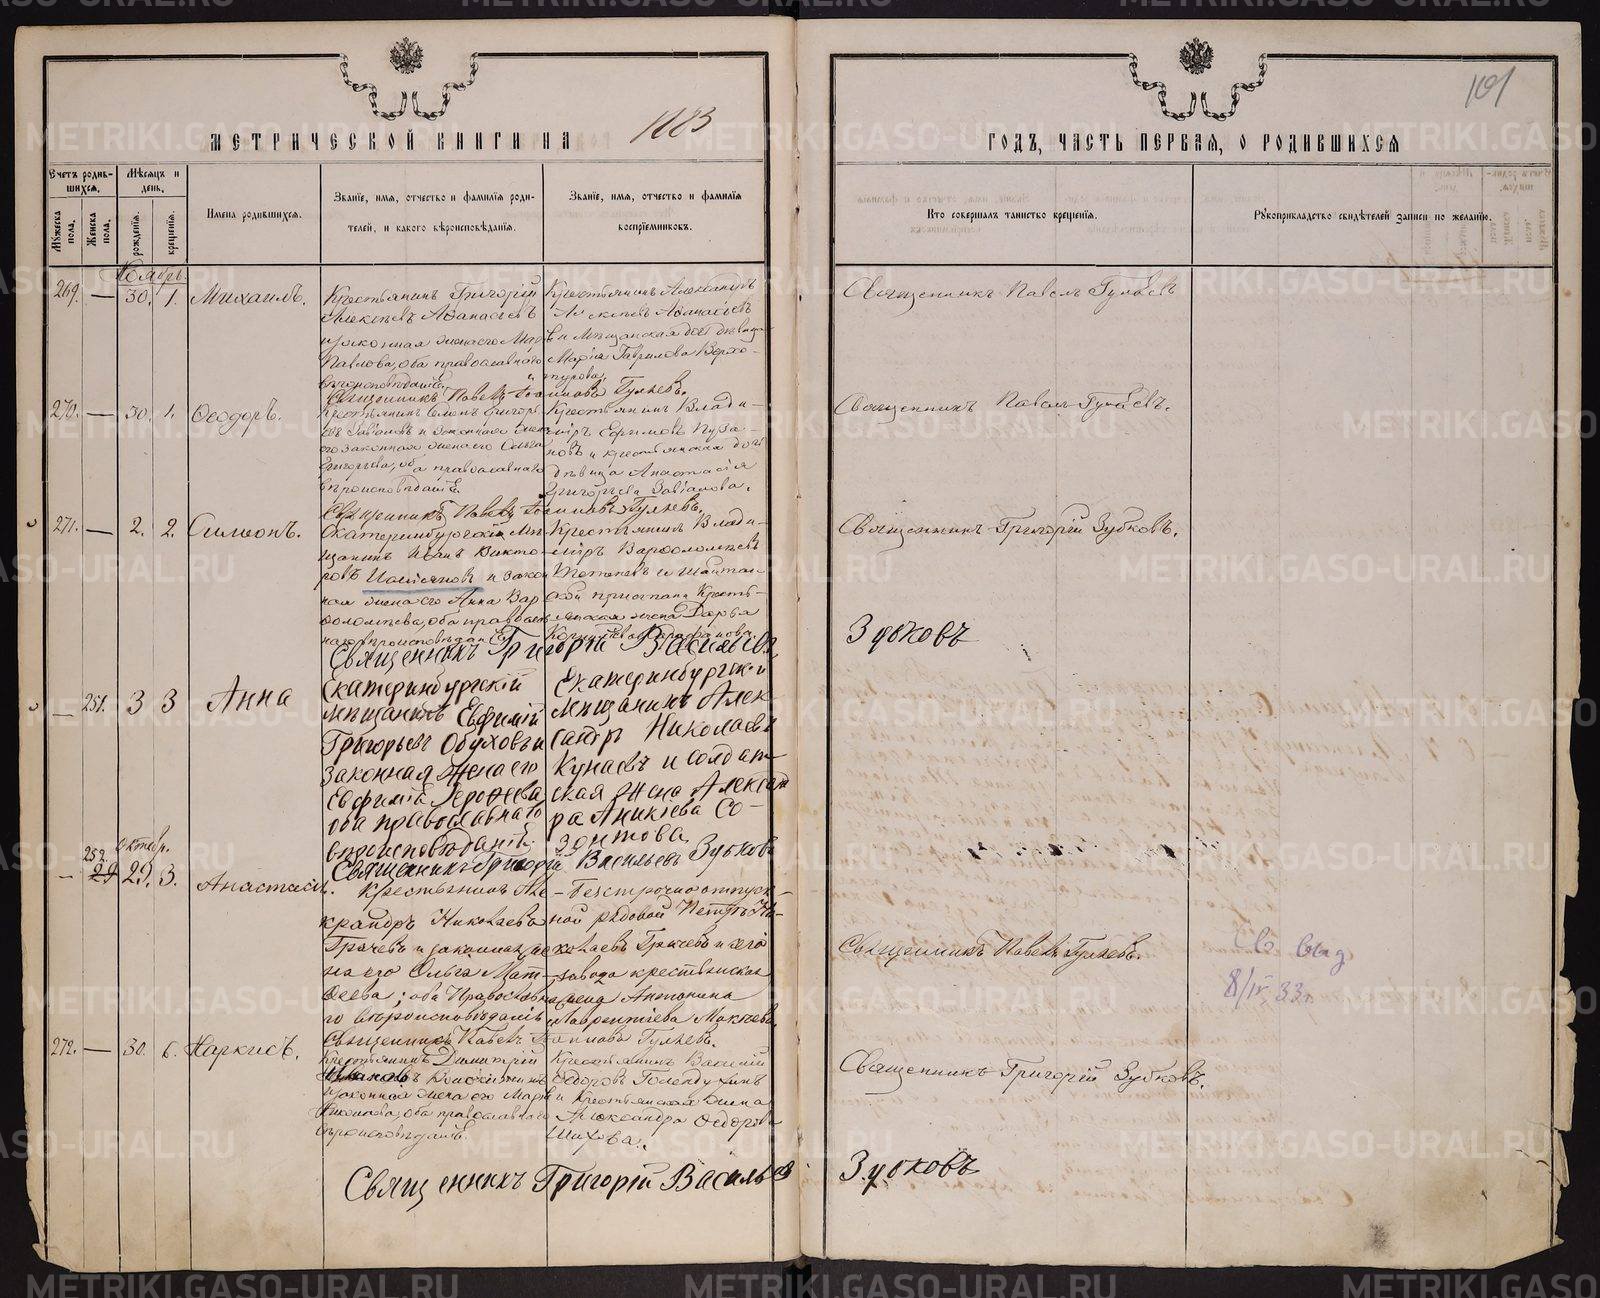 МЕТРИЧЕСКОЙ КНИГИ НА 1883
ГОДЪ, ЧАСТЬ ПЕРВАЯ, О РОДИВШИХСЯ
101
Счетъ родив-
шихся.
Мѣсяцъ и
день.
Мужеска
пола.
Женска
пола.
рожденія.
крещенія.
Имена родившихся.
Званіе, имя, отчество и фамилія роди-
телей, и какого вѣроисповѣданія.
Званіе, имя, отчество и фамилія
воспріемниковъ.
Кто совершалъ таинство крещенія.
Рукоприкладство свидѣтелей записи по желанію.
Ноябрь.
269. — 30. 1. Михаилъ.
Крестьянинъ Григорій
Алексѣевъ Аѳанасьевъ
и законная жена его
Павлова, оба православнаго
вѣроисповѣданія.
Крестьянинъ Александръ
Алексѣевъ Аѳанасьевъ
и Мѣщанская дочь дѣвица
Марія Гаврилова Верхо-
турова.
Священникъ Павелъ Гуляевъ
Священникъ Павелъ Гуляевъ.
270. — 30. 1. Ѳеодоръ.
Крестьянинъ Григорь-
его законная жена его Ольга
Григорьева, оба православнаго
вѣроисповѣданія.
Крестьянинъ Влади-
міръ Ефимовъ
новъ и крестьянская дочь
дѣвица Анастасія
Григорьева Завіалова.
Священникъ Павелъ Гуляевъ.
Священникъ Павелъ Гуляевъ.
271. — 2. 2. Симеонъ.
Екатеринбургскій Мѣ-
щанинъ Иванъ Викто-
ровъ и закон-
ная жена его Анна Вар-
ѳоломѣева, оба православ-
наго вѣроисповѣданія.
Крестьянинъ Влади-
міръ Варѳоломѣевъ
и Шайтан-
ской пристани Кресть-
янская жена Дарья
Священникъ Григорій Зубковъ.
Священникъ Григорій Васильевъ
Зубковъ
— 251. 3 3 Анна
Екатеринбургскій
мѣщанинъ Евфимій
Григорьевъ Обуховъ и
законная жена его
Евфимія
оба православнаго
вѣроисповѣданія.
Екатеринбургскій
мѣщанинъ Алек-
сандръ Николаевъ
Кунаевъ и солдат-
ская жена Александ-
ра Аникіева Со-
зонтова.
Священникъ Григорій Васильевъ Зубковъ
Октябр.
— 252. 29. 3. Анастасія.
Крестьянинъ Але-
ксандръ Николаевъ
Грачевъ и законная же-
на его Ольга Мат-
ѳеева; оба Православна-
го вѣроисповѣданія.
Безсрочноотпуск-
ной рядовой Петръ Ни-
колаевъ Грачевъ и
завода крестьянская
Антонина
Лаврентіева
Священникъ Павелъ Гуляевъ.
Св выд
8/IV 33 г.
Священникъ Павелъ Гуляевъ.
272. — 30. 6. Наркисъ.
Крестьянинъ Димитрій
законная жена его
оба православнаго
вѣроисповѣданія.
Крестьянинъ Василій
Ѳедоровъ Голендухинъ
и Крестьянская жена
Александра Ѳедорова
Шихова.
Священникъ Григорій Зубковъ.
Священникъ Григорій Васильевъ
Зубковъ
METRIKI.GASO-URAL.RU